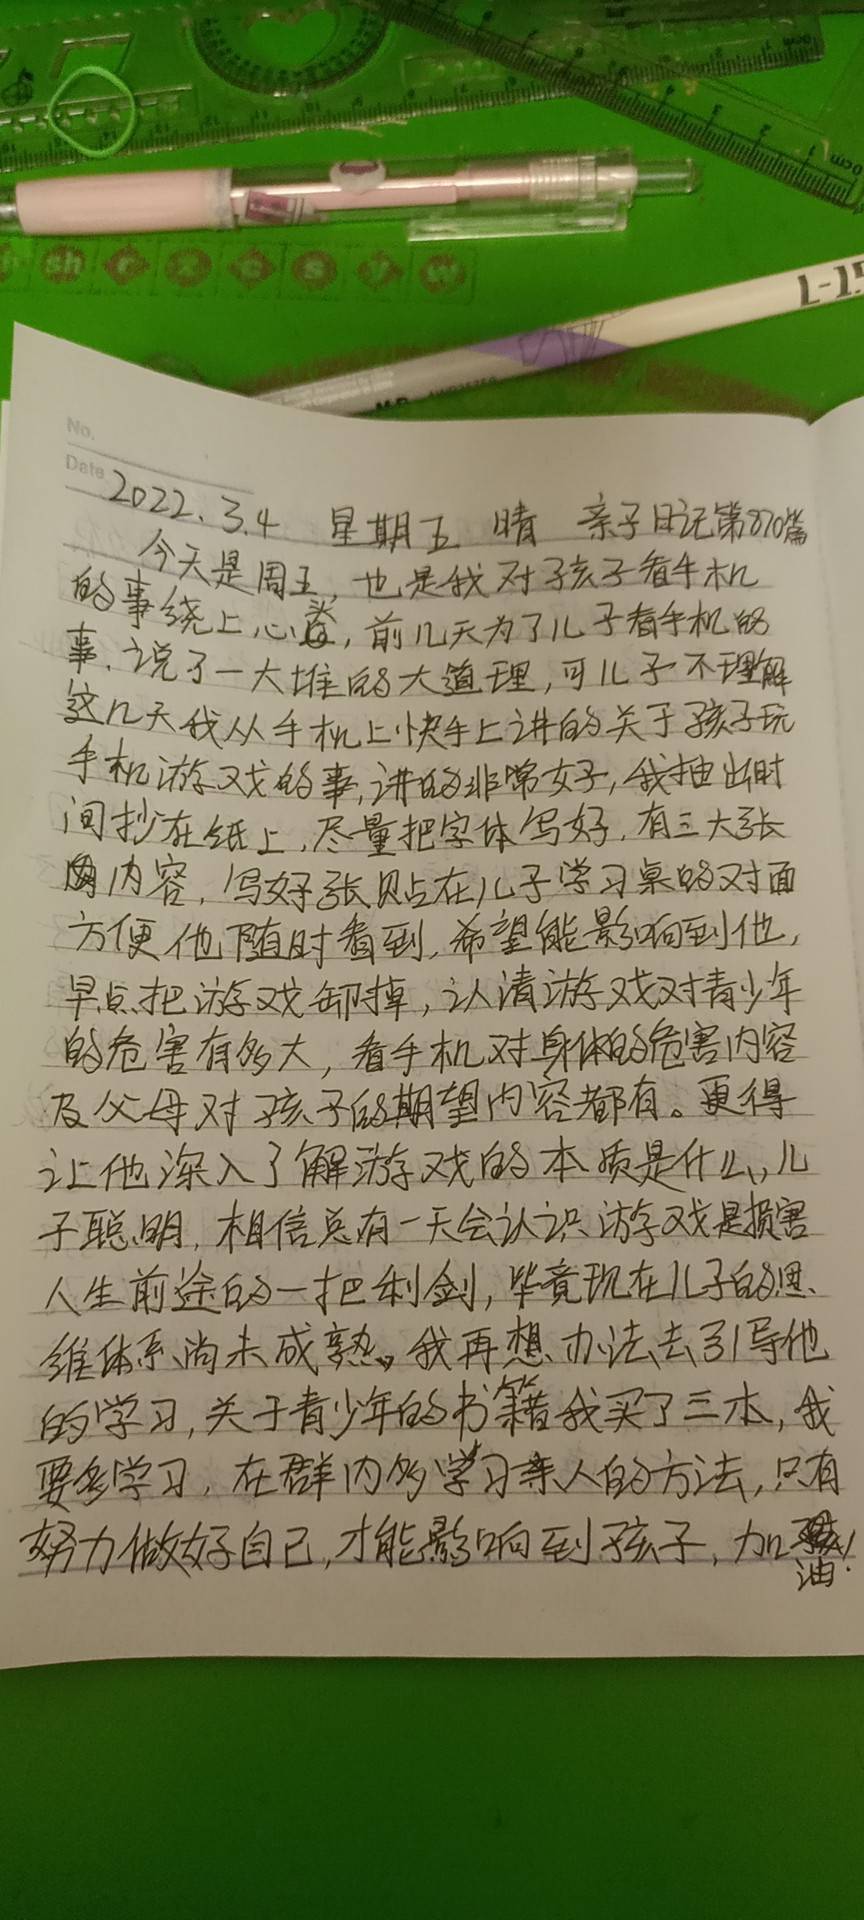 sh r z c s y w
L-15
No.
Date 2022.3.4 星期五 晴 亲子日记第870篇
今天是周五,也是我对孩子看手机
的事绕上心道,前几天为了儿子看手机的
事,说了一大堆的大道理,可儿子不理解
这几天我从手机上快手上讲的关于孩子玩
手机游戏的事,讲的非常好,我抽出时
间抄在纸上,尽量把字体写好,有三大张
内容,写好张贴在儿子学习桌的对面
方便他随时看到,希望能影响到他,
早点把游戏卸掉,认清游戏对青少年
的危害有多大,看手机对身体的危害内容
及父母对孩子的期望内容都有。更得
让他深入了解游戏的本质是什么,儿
子聪明,相信总有一天会认识游戏是损害
人生前途的一把利剑,毕竟现在儿子的思
维体系尚未成熟。我再想办法去引导他
的学习,关于青少年的书籍我买了三本,我
要多学习,在群内多学习亲人的方法,只有
努力做好自己,才能影响到孩子,加
油!